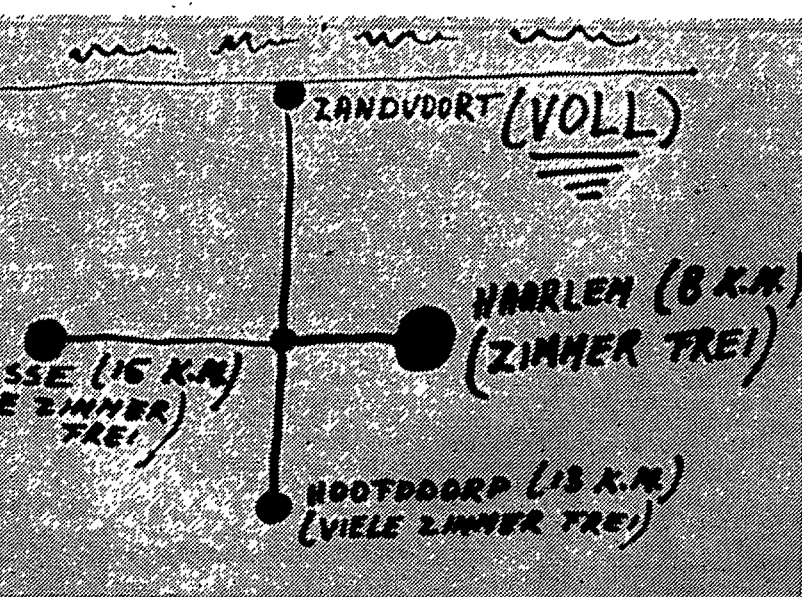 ZANDVOORT (VOLL)
HAARLEM (8 K.M.)
(ZIMMER FREI)
SSE (15 K.M)
E ZIMMER
FREI)
HOOFDDORP (13 K.M.)
(VIELE ZIMMER FREI)